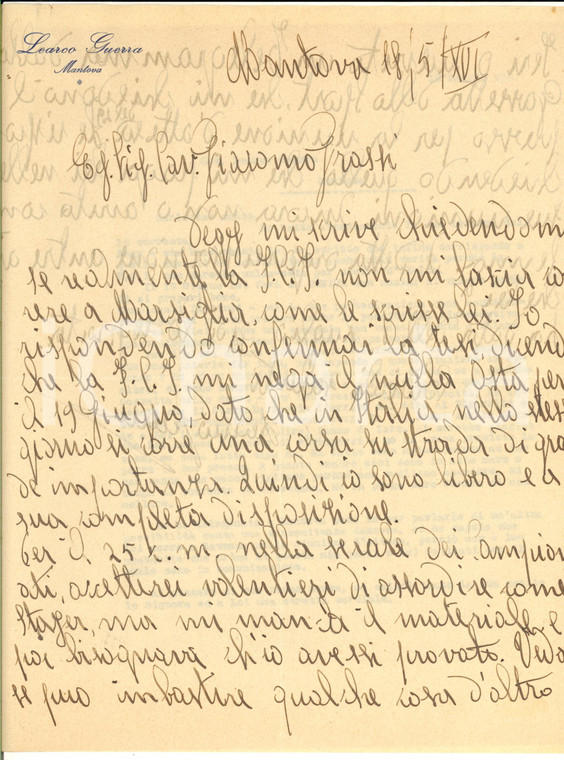 Learco Guerra
Mantova
Mantova 18/5/XVI
Eg. Sig. Cav. Giacomo Grassi
Degg mi scrive chiedendom
se realmente la F.C.I. non mi lascia co
rere a Marsiglia, come le scisse lei. Io
rispondendo confermai la tesi dicend
che la F.C.I. mi nega il nulla osta per
il 19 Giugno, dato che in Italia nello stes
giorno si corre una corsa su strada di gra
de importanza. Quindi io sono libero e a
sua completa disposizione.
Per il 25 c.m. nella serale dei Campion
ati, accetterei volentieri di assordire come
stayer, ma mi manca il materiale e
poi bisognava ch'io avessi provato. Veda
se può imbastire qualche cosa d'altro